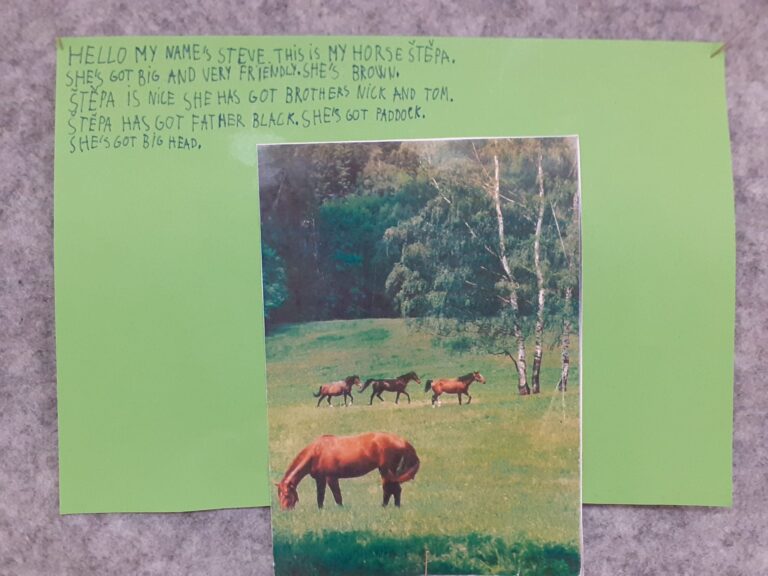 HELLO MY NAME'S STEVE. THIS IS MY HORSE ŠTĚPA.
SHE'S GOT BIG AND VERY FRIENDLY. SHE'S BROWN.
ŠTĚPA IS NICE SHE HAS GOT BROTHERS NICK AND TOM.
ŠTĚPA HAS GOT FATHER BLACK. SHE'S GOT PADDOCK.
SHE'S GOT BIG HEAD.